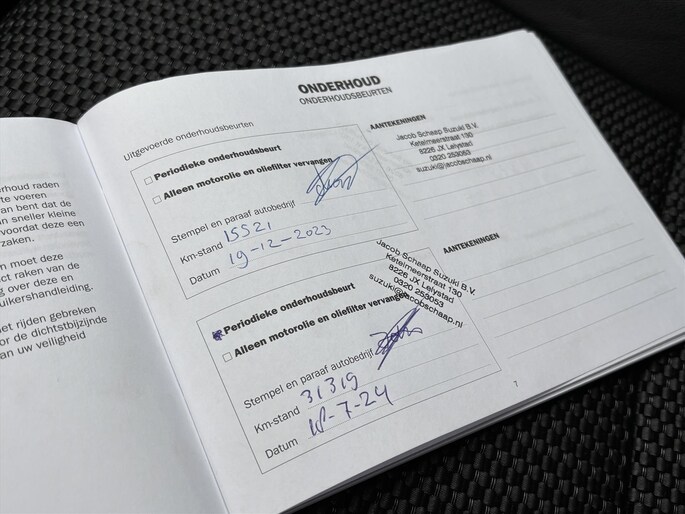 rhoud raden
te voeren
an bent dat de
n sneller kleine
voordat deze een
zaken.
n moet deze
ct raken van de
g over deze en
uikershandleiding.
et rijden gebreken
or de dichtstbijzijnde
an uw veiligheid
ONDERHOUD
ONDERHOUDSBEURTEN
Uitgevoerde onderhoudsbeurten
Periodieke onderhoudsbeurt
Alleen motorolie en oliefilter vervangen
Stempel en paraaf autobedrijf
Km-stand 15521
Datum 19-12-2023
AANTEKENINGEN
Jacob Schaap Suzuki B.V.
Ketelmeerstraat 130
8226 JX Lelystad
0320 253053
suzuki@jacobschaap.nl
Periodieke onderhoudsbeurt
Alleen motorolie en oliefilter vervangen
Stempel en paraaf autobedrijf
Km-stand 31319
Datum -7-24
Jacob Schaap Suzuki B.V.
Ketelmeerstraat 130
8226 JX Lelystad
0320 253053
suzuki@jacobschaap.nl
AANTEKENINGEN
7